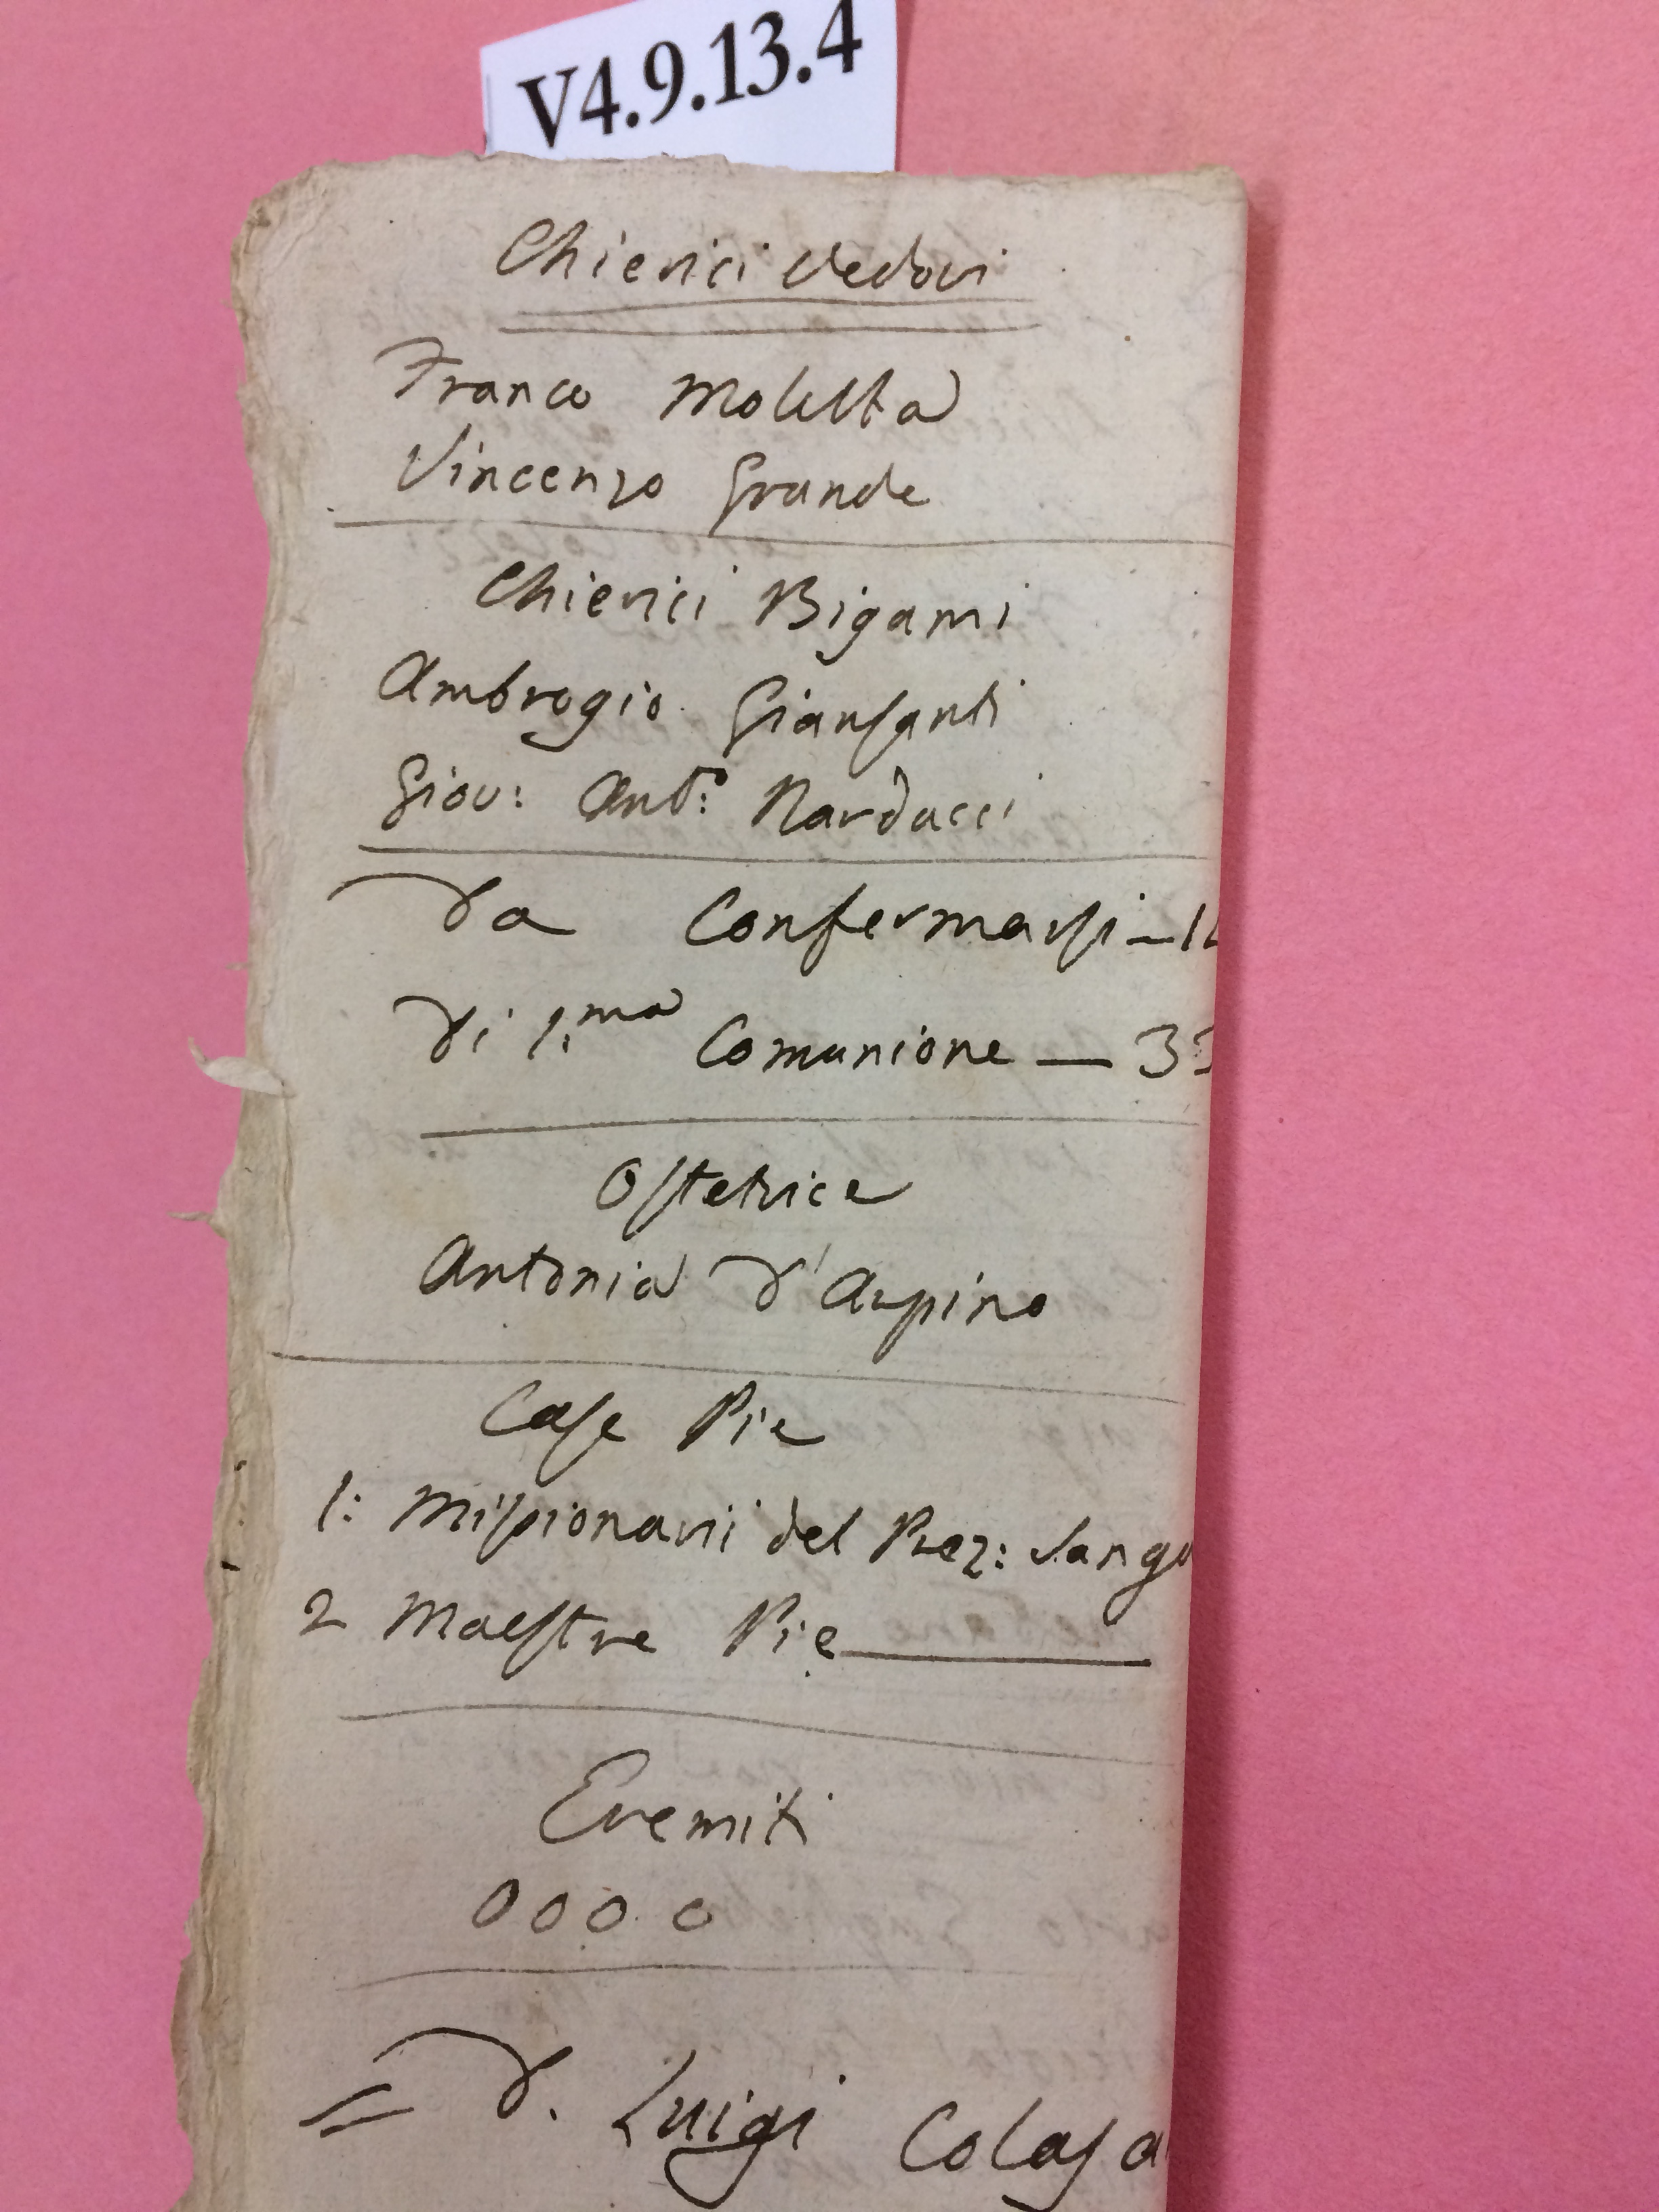 V4.9.13.4
Chierici Vedovi
Franco Moletta
Vincenzo Grande
Chierici Bigami
Ambrogio Giansanti
Giov: Ant.o: Narducci
Da Confermarsi —
Di 1:ma Comunione — 33
Ostetrice
Antonia D'Arpino
Case Pie
1: Missionarii del Prez: Sangu
2 Maestre Pie
Eremiti
0000
= D. Luigi Colasa